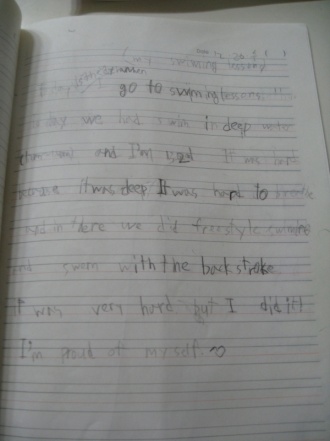 my swimming lesson
I go to swimming lessons!!
day we had swim in deep water
and I'm It was hard
because it was deep. It was hard to breathe
and in there we did freestyle swimming
and swam with the backstroke.
It was very hard but I did it!
I'm proud of myself.